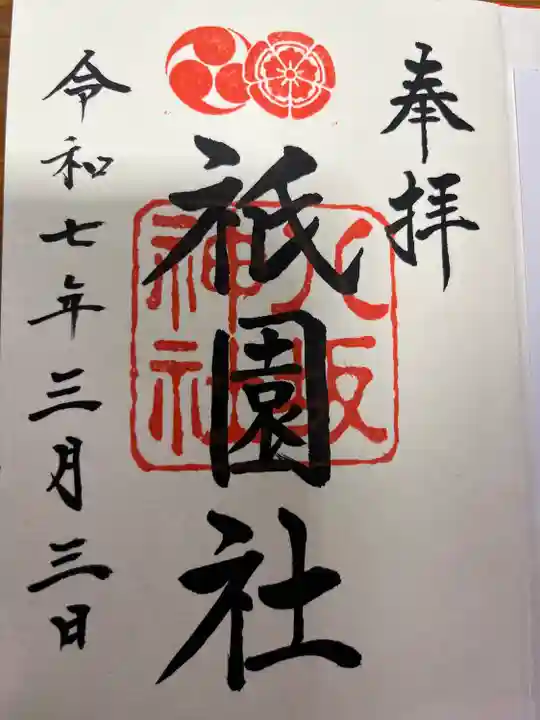 奉拝
祇園社
八坂
神社
令和七年三月三日